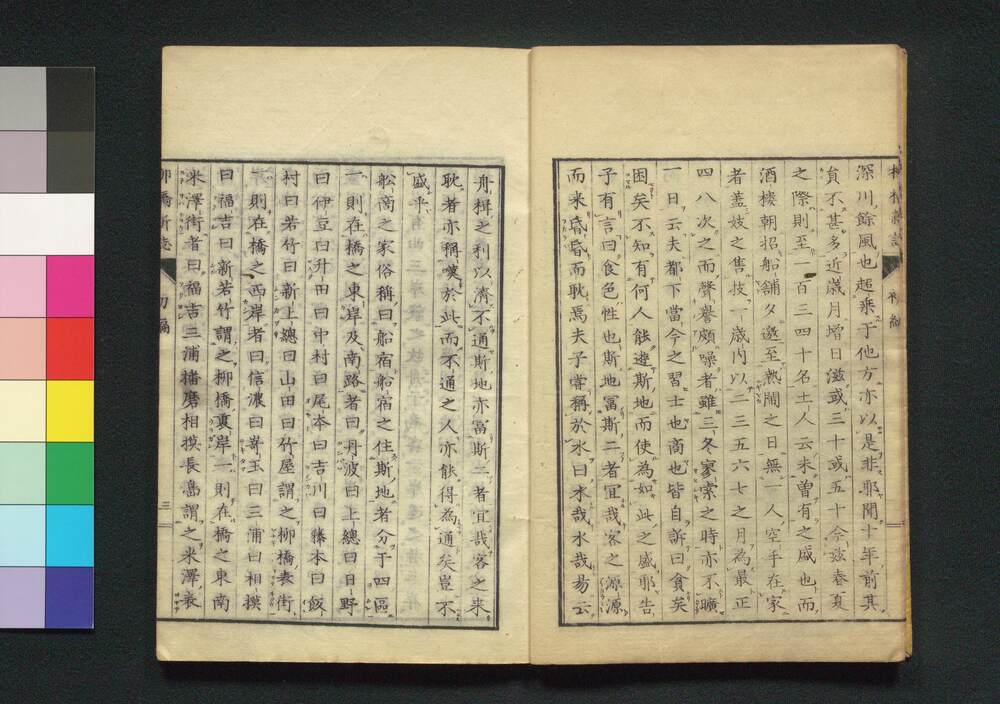 深川餘風也超乘于他方亦以是非耶聞十年前其
負不甚多近歳月增日滋或三十或五十今茲春夏
之際則至一百三四十名土人云未曽有之盛也而
酒樓朝招船舗夕邀至熱鬧之日無一人空手在家
者蓋妓之售技一歳内以二三五六七之月為最正
四八次之而聲譽頗噪者雖三冬寥索之時亦不曠
一日云夫都下當今之習士也商也皆自訴曰貧矣
困矣不知有何人能達斯地而使為如此之盛耶告
子有言曰食色性也斯地冨斯二者宜哉客之源源
而来昏昏而耽焉夫子嘗稱於水曰水哉水哉易云
舟楫之利以濟不通斯地亦冨斯二者宜哉客之来
耽者亦稱嘆於此而不通之人亦能得為通矣豈不
盛乎
舩商之家俗稱曰船宿船宿之住斯地者分于四區
一則在橋之東岸及南路者曰丹波曰上總曰日野
曰伊豆曰升田曰中村曰尾本曰吉川曰藤本曰飯
村曰若竹曰新上總曰山田曰竹屋謂之柳橋表街
一則在橋之西岸者曰信濃曰嵜玉曰三浦曰相摸
曰福吉曰新若竹謂之柳橋裏岸一則在橋之東南
米澤街者曰福吉三浦播磨相摸長島謂之米澤表
柳橋新志 初編 三